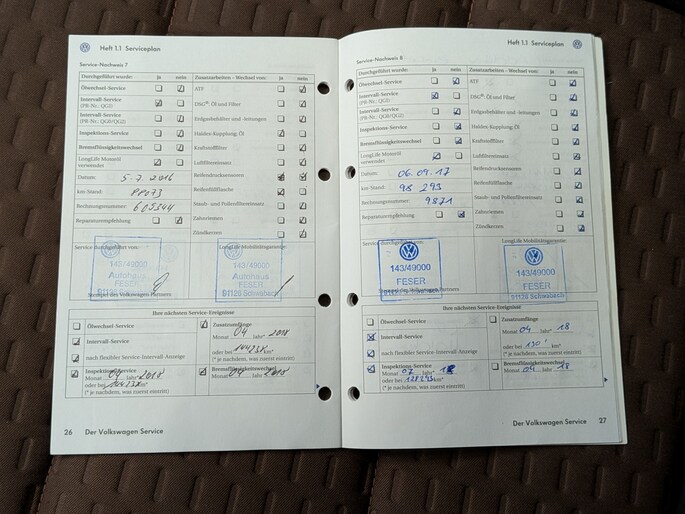 Heft 1.1 Serviceplan
Service-Nachweis 7
Durchgeführt wurde: ja nein Zusatzarbeiten – Wechsel von: ja nein
Ölwechsel-Service ATF
Intervall-Service
(PR-Nr.: QG1)
DSG®: Öl und Filter
Intervall-Service
(PR-Nr.: QG0/QG2)
Erdgasbehälter und -leitungen
Inspektions-Service Haldex-Kupplung, Öl
Bremsflüssigkeitswechsel Kraftstofffilter
LongLife Motoröl
verwendet
Luftfiltereinsatz
Datum: 5.7.2016 Reifendrucksensoren
km-Stand: Reifenfüllflasche
Rechnungsnummer: 605344 Staub- und Pollenfiltereinsatz
Reparaturempfehlung Zahnriemen
Zündkerzen
Service durchgeführt von: LongLife Mobilitätsgarantie:
143/49000
Autohaus
FESER
91126 Schwabach
143/49000
FESER
91126 Schwabach
Stempel des Volkswagen Partners
Ihre nächsten Service-Ereignisse
Ölwechsel-Service Zusatzumfänge
Monat 04 Jahr* 2018
Intervall-Service
oder bei km*
nach flexibler Service-Intervall-Anzeige (* je nachdem, was zuerst eintritt)
Inspektions-Service
Monat 04 Jahr* 2018
oder bei km*
(* je nachdem, was zuerst eintritt)
Bremsflüssigkeitswechsel
Monat 04 Jahr 2018
26 Der Volkswagen Service
Heft 1.1 Serviceplan
Service-Nachweis 8
Durchgeführt wurde: ja nein Zusatzarbeiten – Wechsel von: ja nein
Ölwechsel-Service ATF
Intervall-Service
(PR-Nr.: QG1)
DSG®: Öl und Filter
Intervall-Service
(PR-Nr.: QG0/QG2)
Erdgasbehälter und -leitungen
Inspektions-Service Haldex-Kupplung, Öl
Bremsflüssigkeitswechsel Kraftstofffilter
LongLife Motoröl
verwendet
Luftfiltereinsatz
Datum: 06.09.17 Reifendrucksensoren
km-Stand: 98 293 Reifenfüllflasche
Rechnungsnummer: 9871 Staub- und Pollenfiltereinsatz
Reparaturempfehlung Zahnriemen
Zündkerzen
Service durchgeführt von: LongLife Mobilitätsgarantie:
143/49000
FESER
91126 Schwabach
143/49000
FESER
91126 Schwabach
Stempel des Volkswagen Partners
Ihre nächsten Service-Ereignisse
Ölwechsel-Service Zusatzumfänge
Monat 04 Jahr* 18
Intervall-Service
oder bei 130' km*
nach flexibler Service-Intervall-Anzeige (* je nachdem, was zuerst eintritt)
Inspektions-Service
Monat 07 Jahr* 18
oder bei 128293 km*
(* je nachdem, was zuerst eintritt)
Bremsflüssigkeitswechsel
Monat 04 Jahr 18
Der Volkswagen Service 27